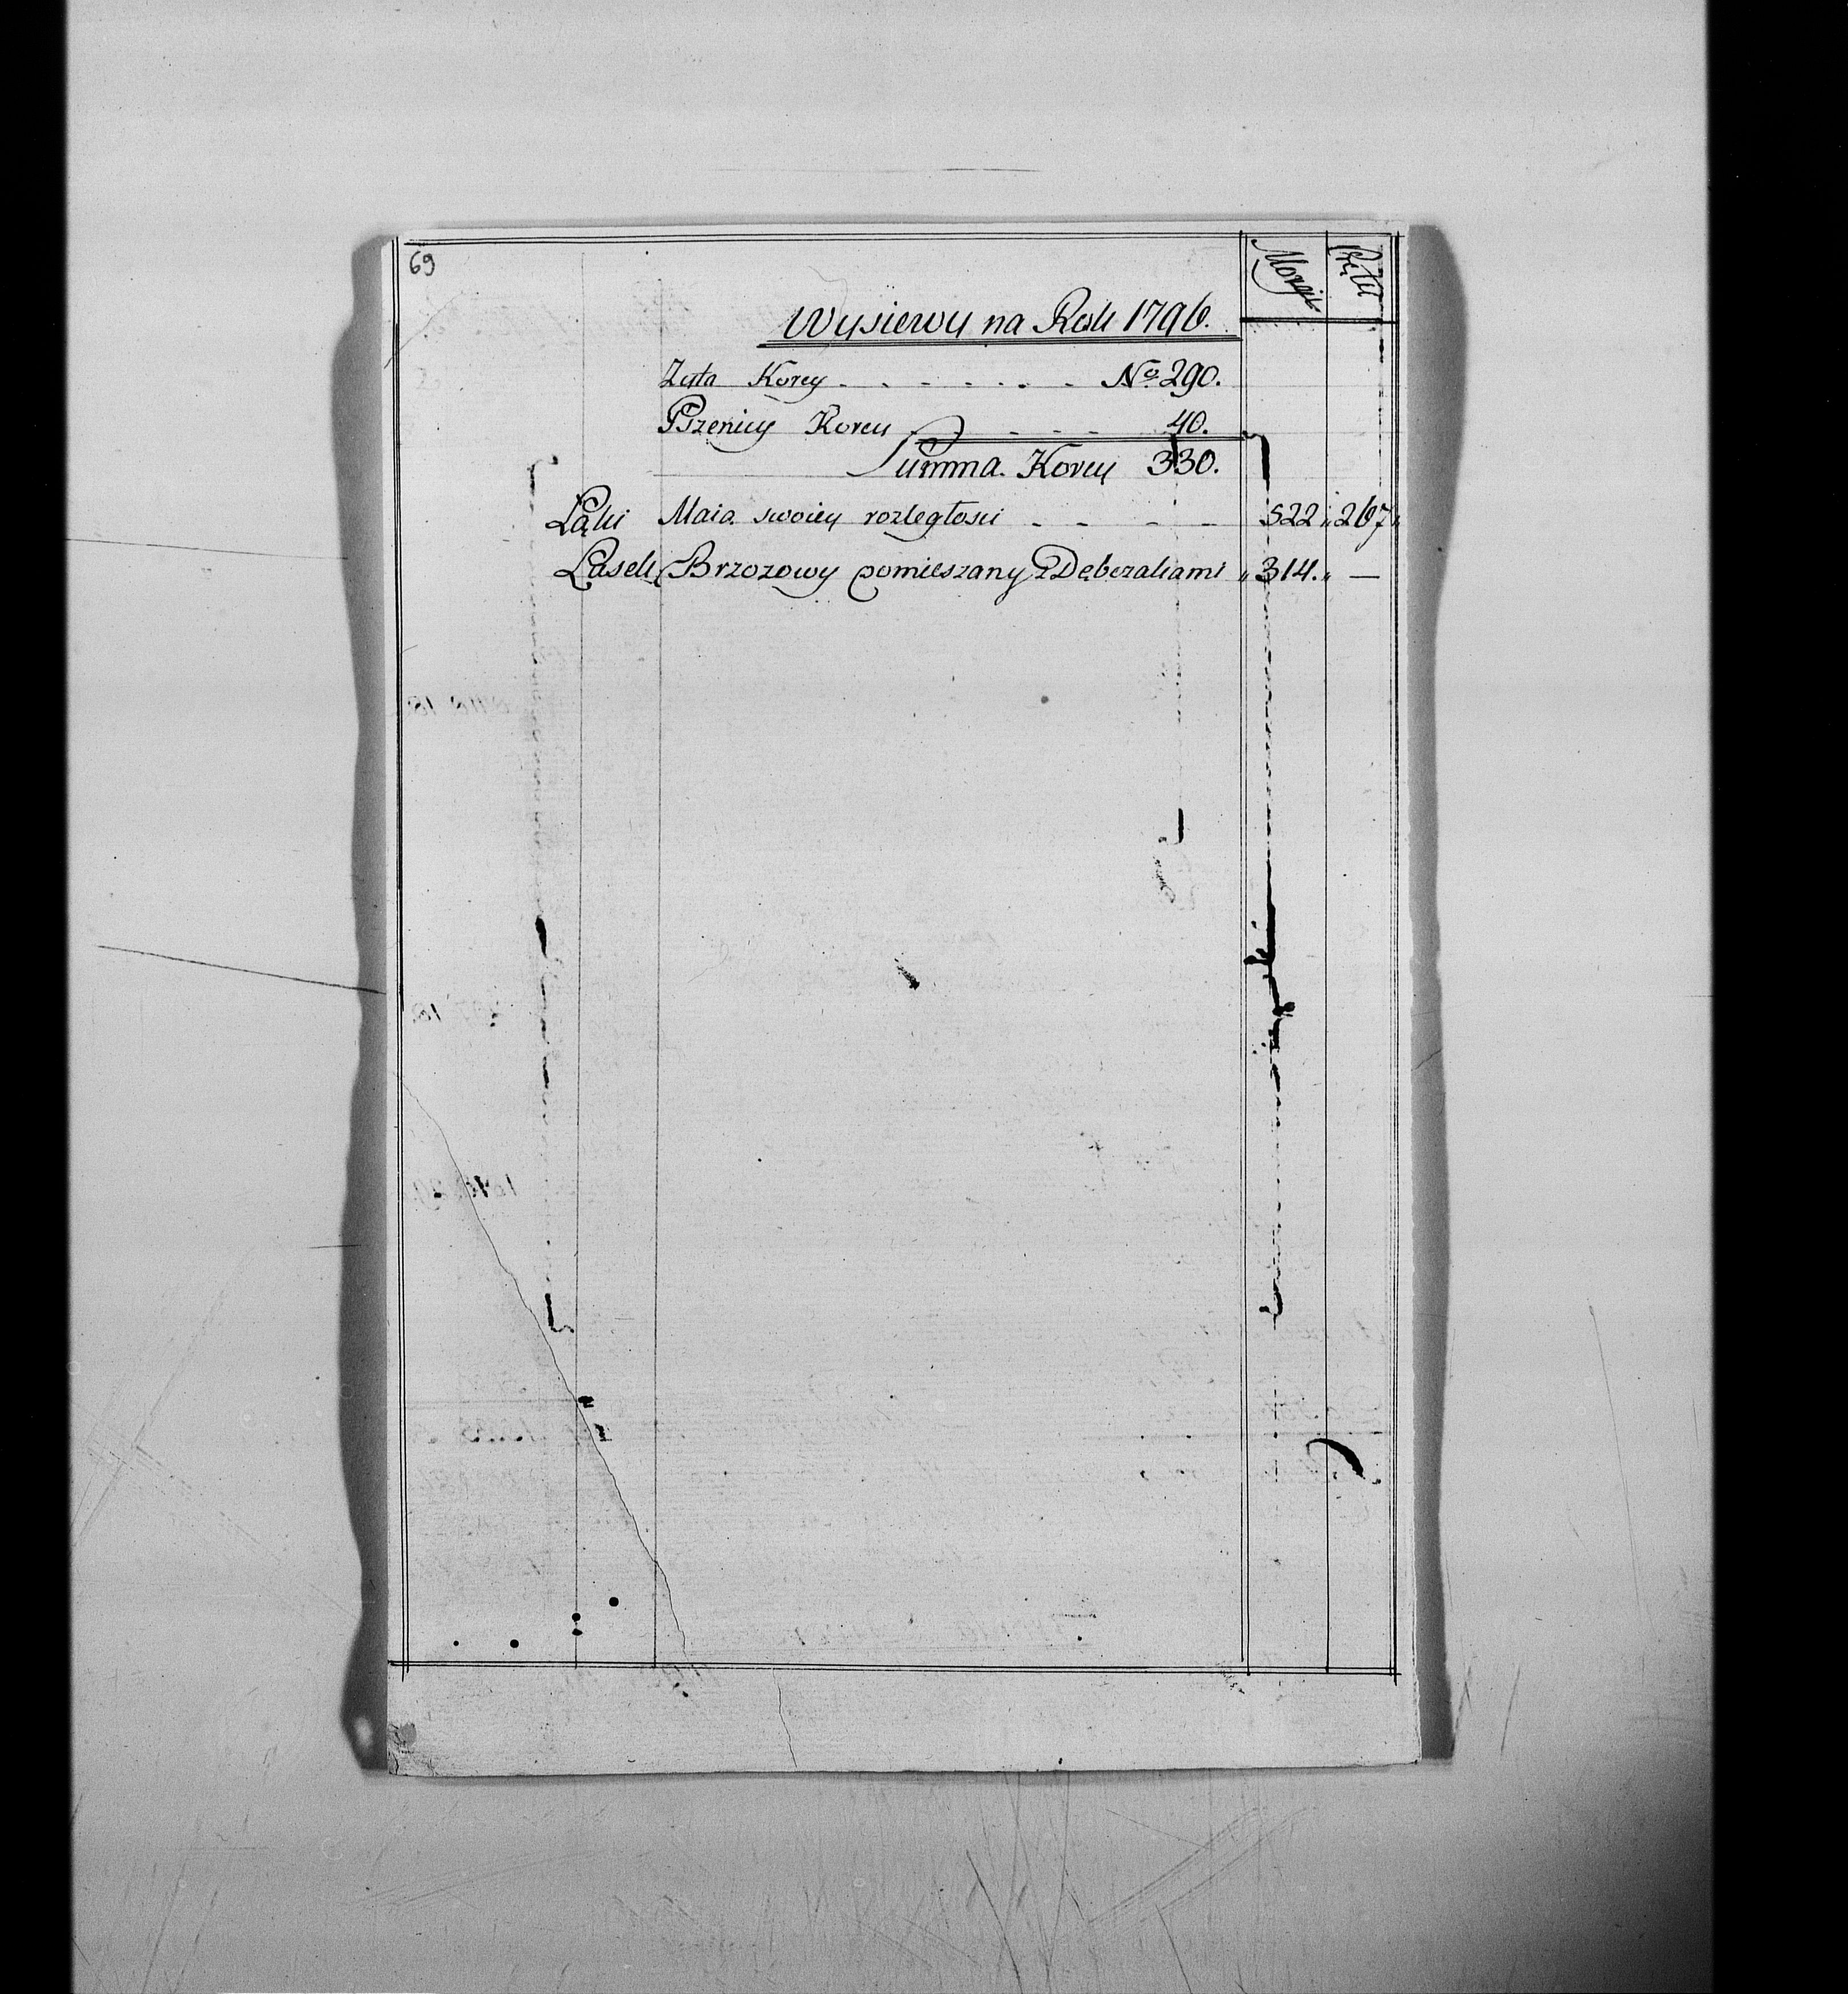 69
Morgi Pręty
Wysiewy na Rok 1796.
Zyta Korcy . . . . . . . No. 290.
Pszenicy Korcy - - - - 40.
Summa Korcy 330.
Łąki Maią swoiey rozległosci - - - - 522 „ 267 „
Lasek Brzozowy pomieszany z Dębczakami „ 314. „ —